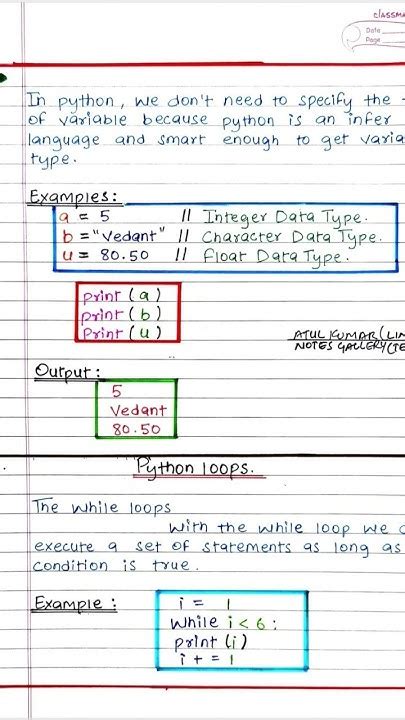 classma
Date
Page
In python, we don't need to specify the
of variable because python is an infer
language and smart enough to get varia
type.
Examples:
a = 5 // Integer Data Type.
b = "Vedant" // Character Data Type.
u = 80.50 // Float Data Type.
print (a)
print (b)
Print (u)
ATUL KUMAR (LIN
NOTES GALLERY (TE
Output:
5
Vedant
80.50
Python loops.
The While loops
With the while loop we c
execute a set of statements as long as
condition is true.
Example:
i = 1
While i < 6:
print (i)
i + = 1